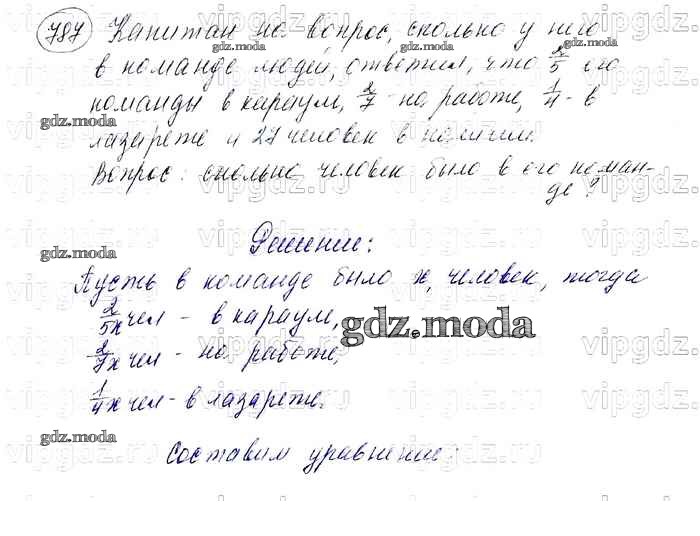 787 Капитан на вопрос, сколько у него
в команде людей, ответил, что 2/5 его
команды в карауле, 2/7 - на работе, 1/4 - в
лазарете и 27 человек в наличии.
Вопрос: сколько человек было в его коман-
де?
Решение:
Пусть в команде было x человек, тогда
2/5x чел - в карауле,
2/7x чел - на работе,
1/4x чел - в лазарете.
Составим уравнение:
gdz.moda
vipgdz.ru